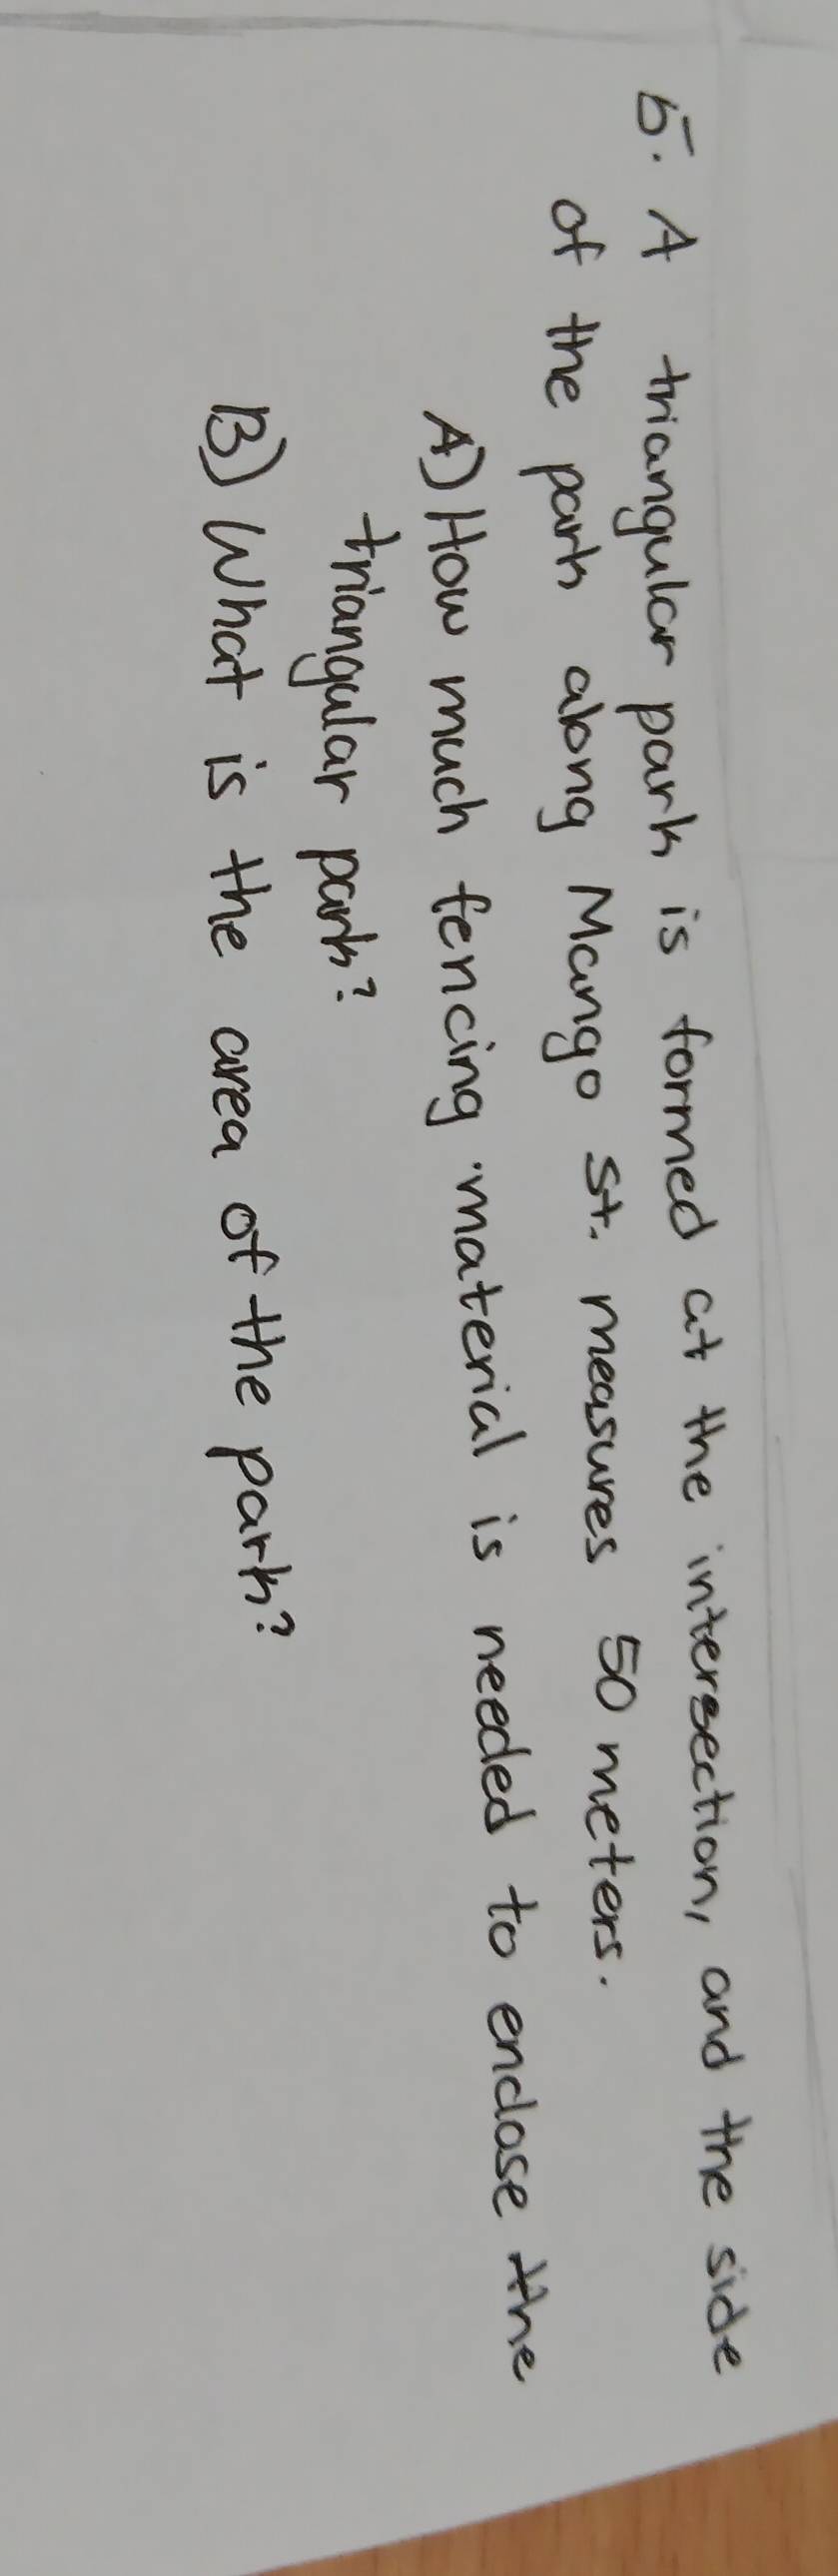 5. A triangular park is formed at the intersection, and the side
of the park along Mango St. measures 50 meters.
A) How much fencing material is needed to enclose the
triangular park?
B) What is the area of the park?